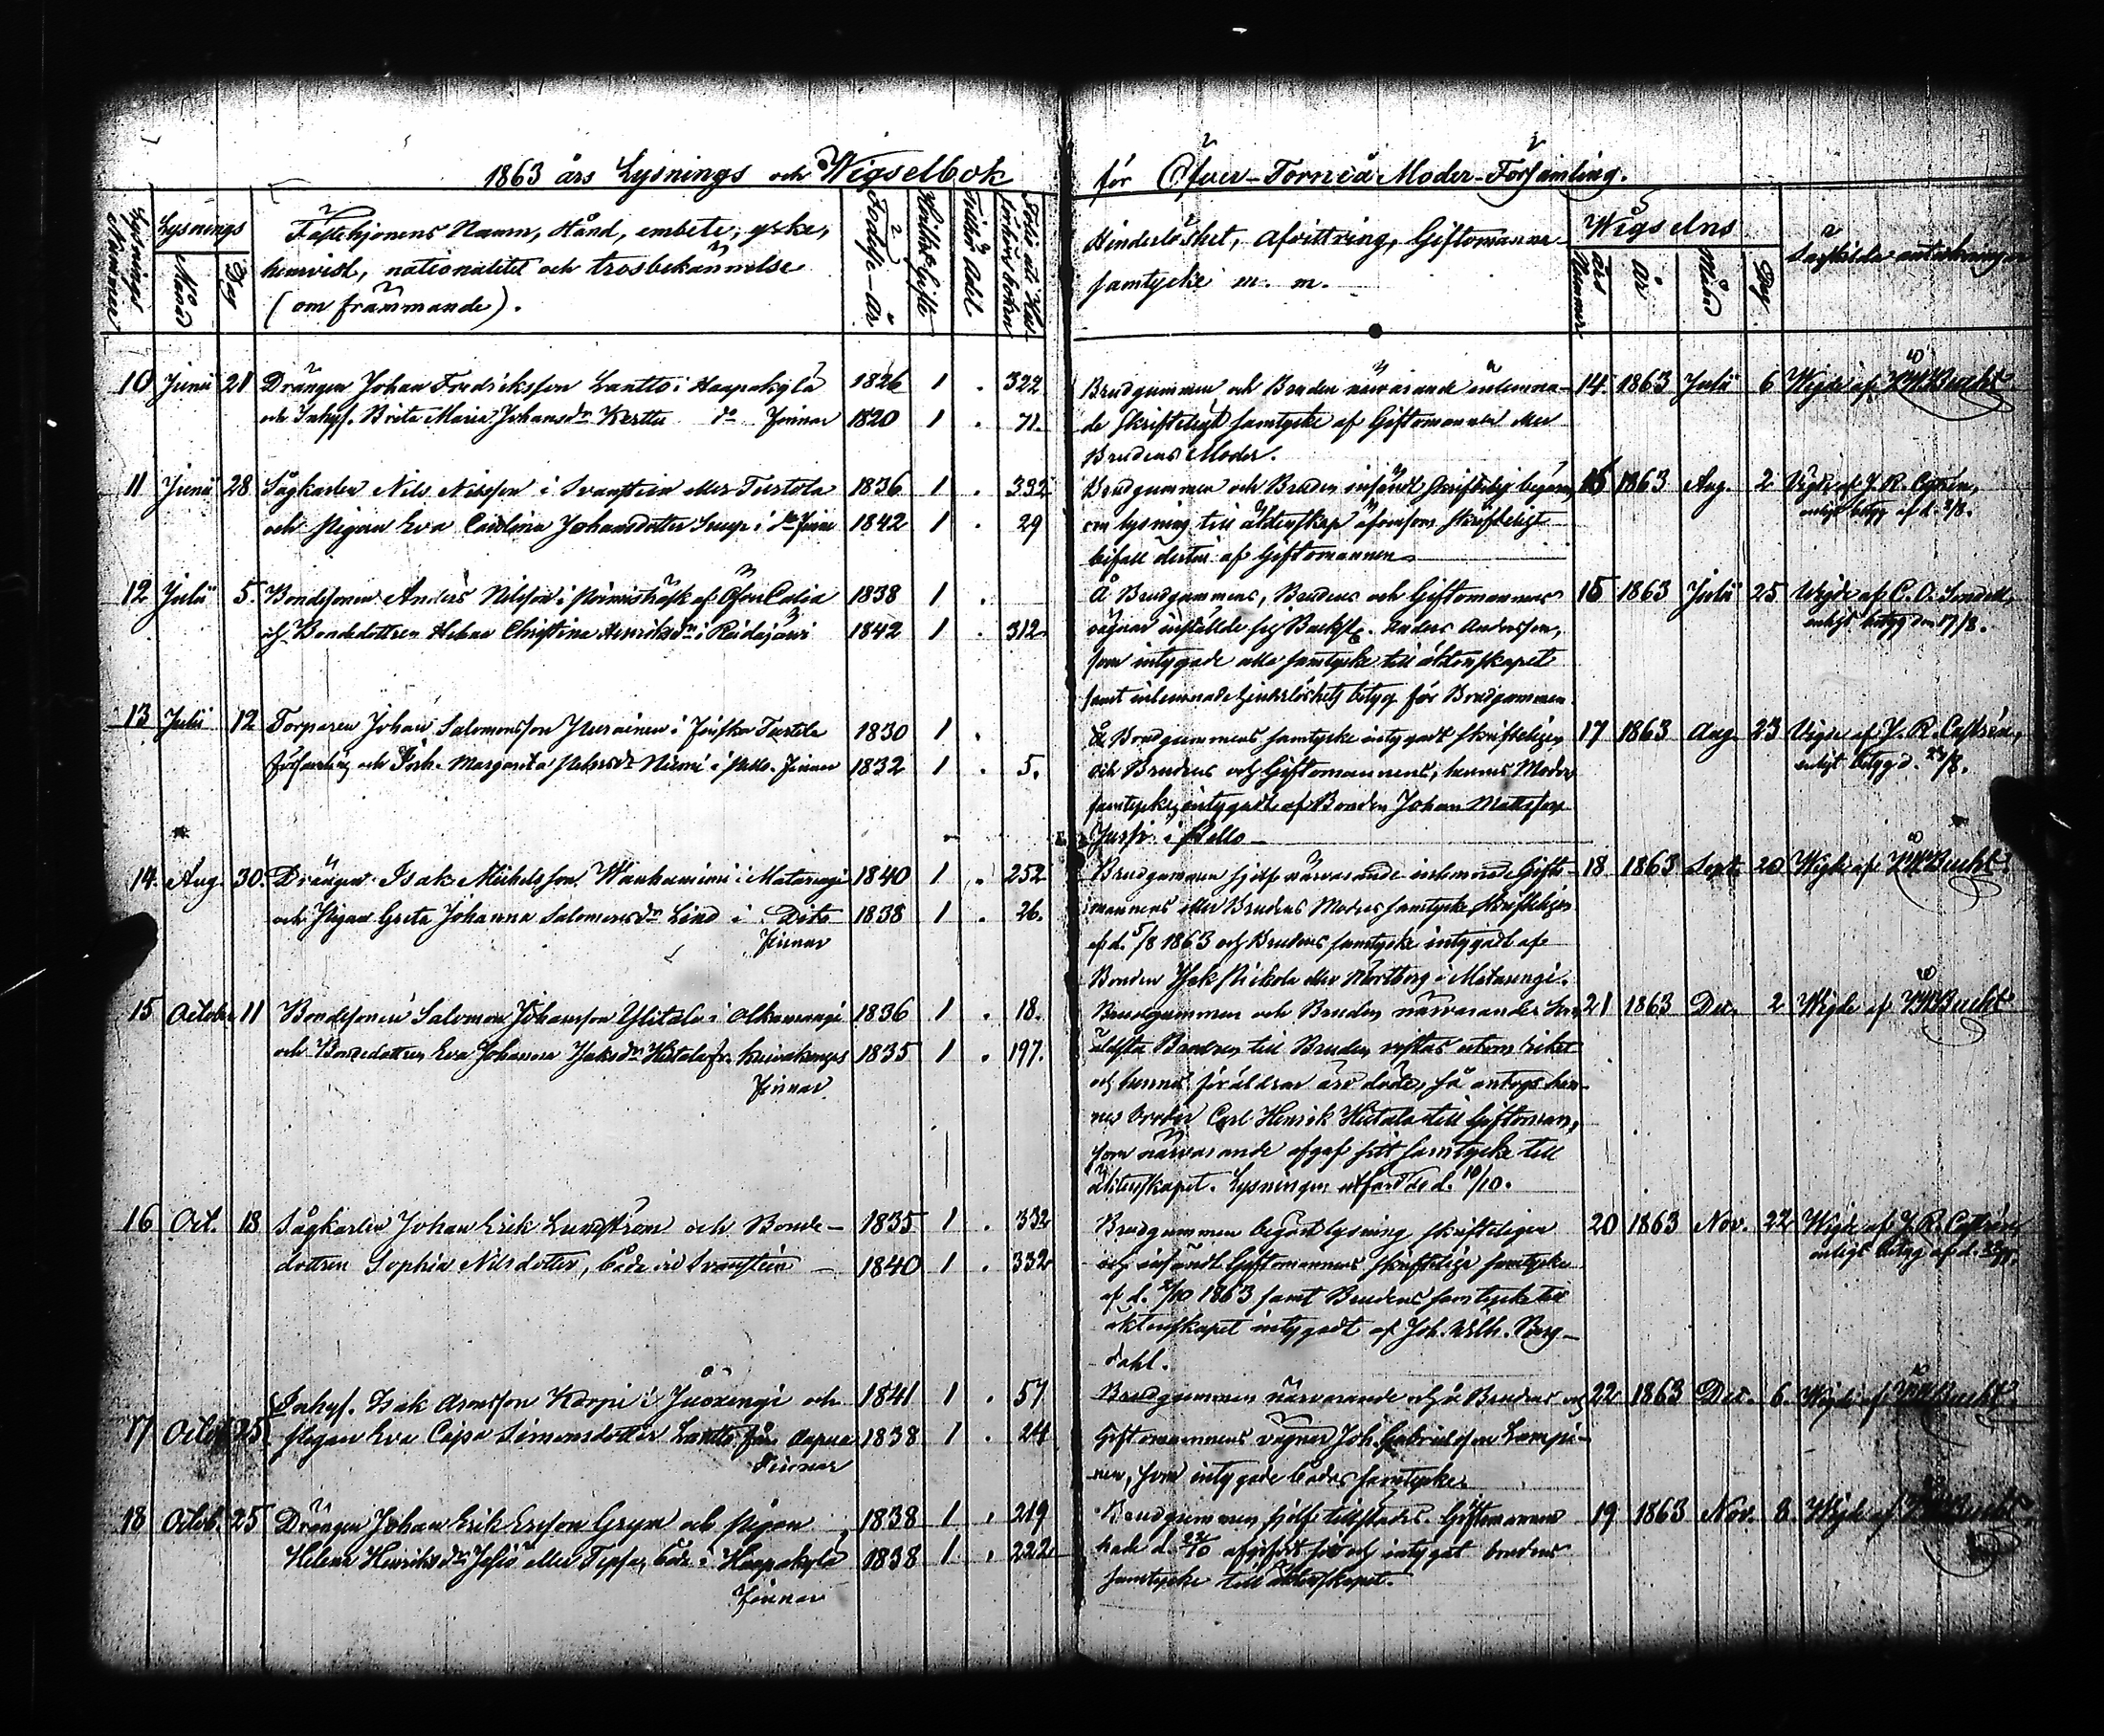 1863 års Lysnings och Wigselbok
för Öfver-Torneå Moder-Församling.
Lysnings Nummer
Lysnings
Månad
Dag
Fästehjonens Namn, stånd, embete, yrke,
hemvist, nationalitet och trosbekännelse
(om främmande).
Födelse-år
Hvilket Gifte
Folio uti Hus-
förhörs boken
Hinderlöshet, Afvittring, Giftomanna-
samtycke m. m.
Wigselns
Nummer
år
Månad
Dag
Särskilda anteckningar
10 Junii 21 Drängen Johan Fredriksson Lantto i Haapakylä 1826 1 . 322
och Inhys. Brita Maria Johansdr Kerttu do Finnar 1820 1 . 71.
Brudgummen och Bruden närvarande inlemna-
de skriftligt samtycke af Giftomannen eller
Brudens Moder.
14. 1863 Julii 6 Wigde af Bucht
11 Junii 28 Sågkarlen Nils Nilsson i Svanstein eller Turtola 1836 1 . 332
och Pigan Eva Carolina Johansdotter i do 1842 1 . 29
Brudgummen och Bruden insändt skriftelig begäran
om lysning till äktenskap äfvensom skrifteligt
bifall dertill af Giftomannen
16 1863 Aug. 2 Vigde af J. R.
enligt betyg af d. 2/8.
12 Julii 5. Bondesonen Anders Nilsson i af Öfver Calix 1838 1 .
och Bondedottren Helena Christina Henriksdr i Raidajärvi 1842 1 . 312
Å Brudgummens, Brudens och Giftomannens
vägnar inställde sig Anders Andersson,
som intygade alla samtycke till äktenskapet
samt inlemnade hinderlöshets betyg för Brudgummen.
15 1863 Julii 25 Wigde af C. O.
enligt betyg den 17/8.
13 Julii 12 Torparen Johan Salomonsson i Finska Turtola 1830 1 .
församling och Inh. Margareta Niemi i Pello. Finnar 1832 1 . 5.
Brudgummens samtycke intygadt skrifteligen
och Brudens och Giftomannens, hennes Moders
samtycke, intygadt af Bonden Johan Mattsson
i Pello
17 1863 Aug 23 Vigde af J. R. Castrén,
enligt betyg d. 23/8.
14. Aug. 30. Drängen Isak Michelsson Wanhaniemi i Matarengi 1840 1 . 252
och Pigan Greta Johanna Salomonsdr Lind i Dito 1838 1 . 26.
Finnar
Brudgummen sjelf närvarande inlemnade Gifto-
mannens eller Brudens Moders samtycke skrifteligen
af d. 5/8 1863 och Brudens samtycke intygadt af
Bonden Isak Niskala eller i Matarengi.
18 1863 Sept. 20 Wigde af Bucht
15 October 11 Bondesonen Salomon Johansson Ylitalo i Alkumengi 1836 1 . 18.
och Bondedottren Eva Johanna Isaksdr Hietala fr. 1835 1 . 197.
Finnar
Brudgummen och Bruden närvarande.
äldsta Brodren till Bruden vistas utom riket
och hennes föräldrar äro döde, så antogs hen-
nes broder Carl Henrik Hietala till Giftoman,
som närvarande afgaf sitt samtycke till
äktenskapet. Lysningen utfärdades d. 10/10.
21 1863 Dec. 2 Wigde af Bucht
16 Oct. 18 Sågkarlen Johan Erik Lundström och Bonde- 1835 1 . 332
dottren Sophia Nilsdotter, både vid Svanstein 1840 1 . 332
Brudgummen begärt lysning skrifteligen
och insändt Giftomannens skriftelige samtycke
af d. 1863 samt Brudens samtycke till
äktenskapet intygadt af Joh. Wilh. Berg-
dahl.
20 1863 Nov. 22 Wigde af J. R. Castrén
enligt betyg af d. 22/11.
17 Octob. 25 Inhys. Isak Aronsson Karpi i Juoxengi och 1841 1 . 57
Pigan Eva Cajsa Simonsdotter Lantto från Aapua 1838 1 . 24
Finnar
Brudgummen närvarande och å Brudens och
Giftomannens vägnar Joh. Gabrielsson Lampi-
nen, som intygade bådas samtycke.
22 1863 Dec. 6. Wigde af Bucht
18 Octob. 25 Drängen Johan Erik Ersson Grym och Pigan 1838 1 . 219
Helena Henriksdr eller både i Haapakylä 1838 1 . 222
Finnar
Brudgummen sjelf tillstädes. Giftomannen
hade d. och intygat brudens
samtycke till äktenskapet.
19 1863 Nov. 8. Wigde af Bucht